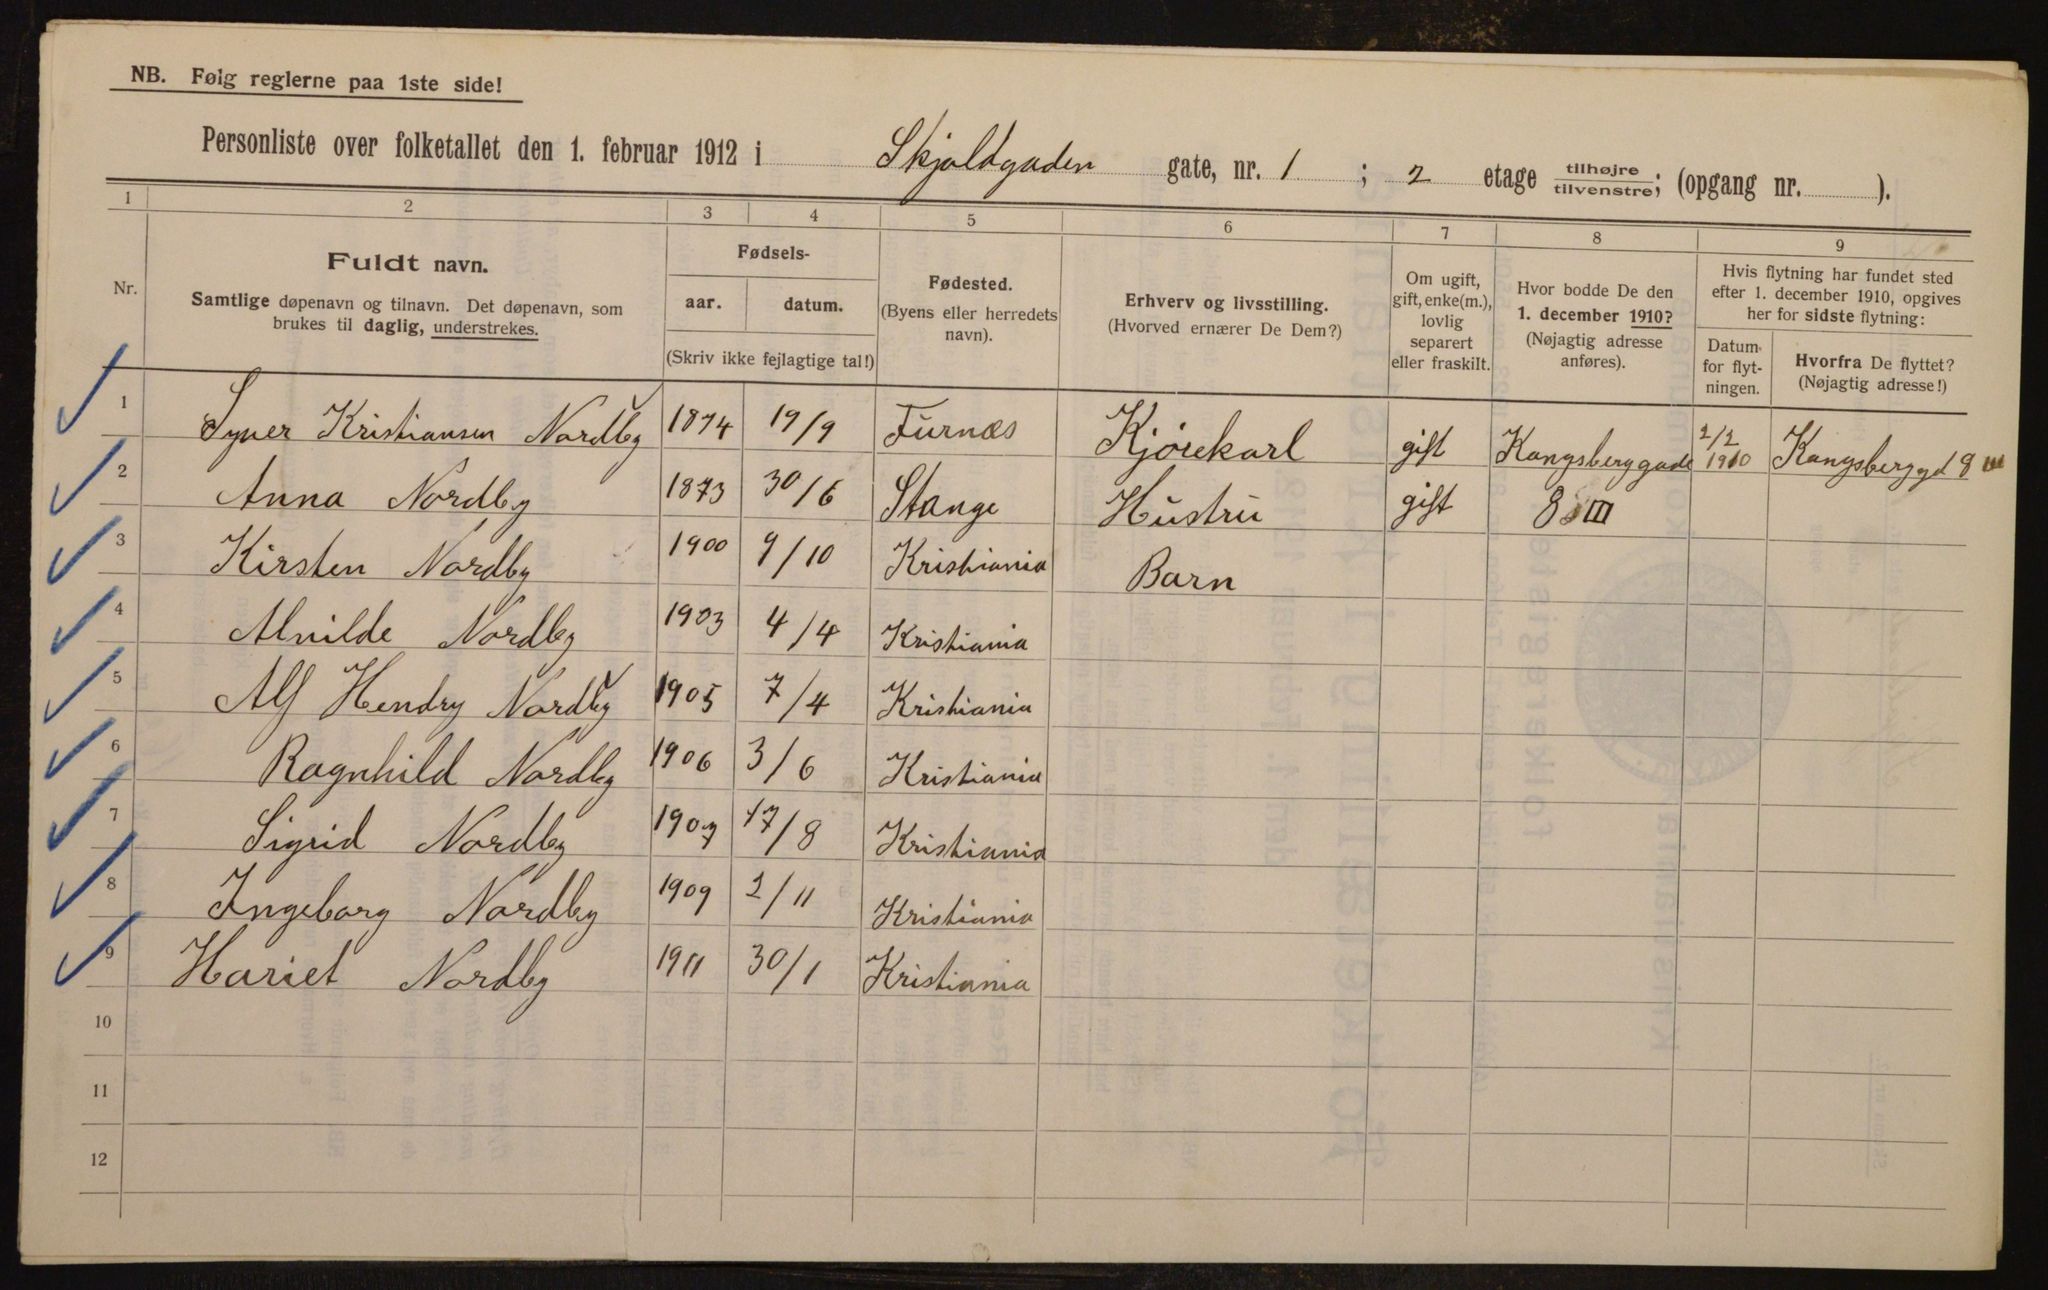 NB. Følg reglerne paa 1ste side!
Personliste over folketallet den 1. februar 1912 i Skjoldgaden gate, nr. 1 ; 2 etage tilhøjre/tilvenstre; (opgang nr. ).
1 2 3 4 5 6 7 8 9
Nr.
Fuldt navn.
Samtlige døpenavn og tilnavn. Det døpenavn, som
brukes til daglig, understrekes.
Fødsels-
aar. datum.
(Skriv ikke fejlagtige tal!)
Fødested.
(Byens eller herredets
navn).
Erhverv og livsstilling.
(Hvorved ernærer De Dem?)
Om ugift,
gift, enke(m.),
lovlig
separert
eller fraskilt.
Hvor bodde De den
1. december 1910?
(Nøjagtig adresse
anføres).
Hvis flytning har fundet sted
efter 1. december 1910, opgives
her for sidste flytning:
Datum
for flyt-
ningen.
Hvorfra De flyttet?
(Nøjagtig adresse!)
1 Syver Kristiansen Nordby 1874 19/9 Furnæs Kjørekarl gift Kongsberggade 2/2 1910 Kongsberggd 8 III
2 Anna Nordby 1873 30/6 Stange Hustru gift 8 III
3 Kirsten Nordby 1900 9/10 Kristiania Barn
4 Alvilde Nordby 1903 4/4 Kristiania
5 Alf Hendry Nordby 1905 7/4 Kristiania
6 Ragnhild Nordby 1906 3/6 Kristiania
7 Sigrid Nordby 1907 17/8 Kristiania
8 Ingeborg Nordby 1909 2/11 Kristiania
9 Hariet Nordby 1911 30/1 Kristiania
10
11
12